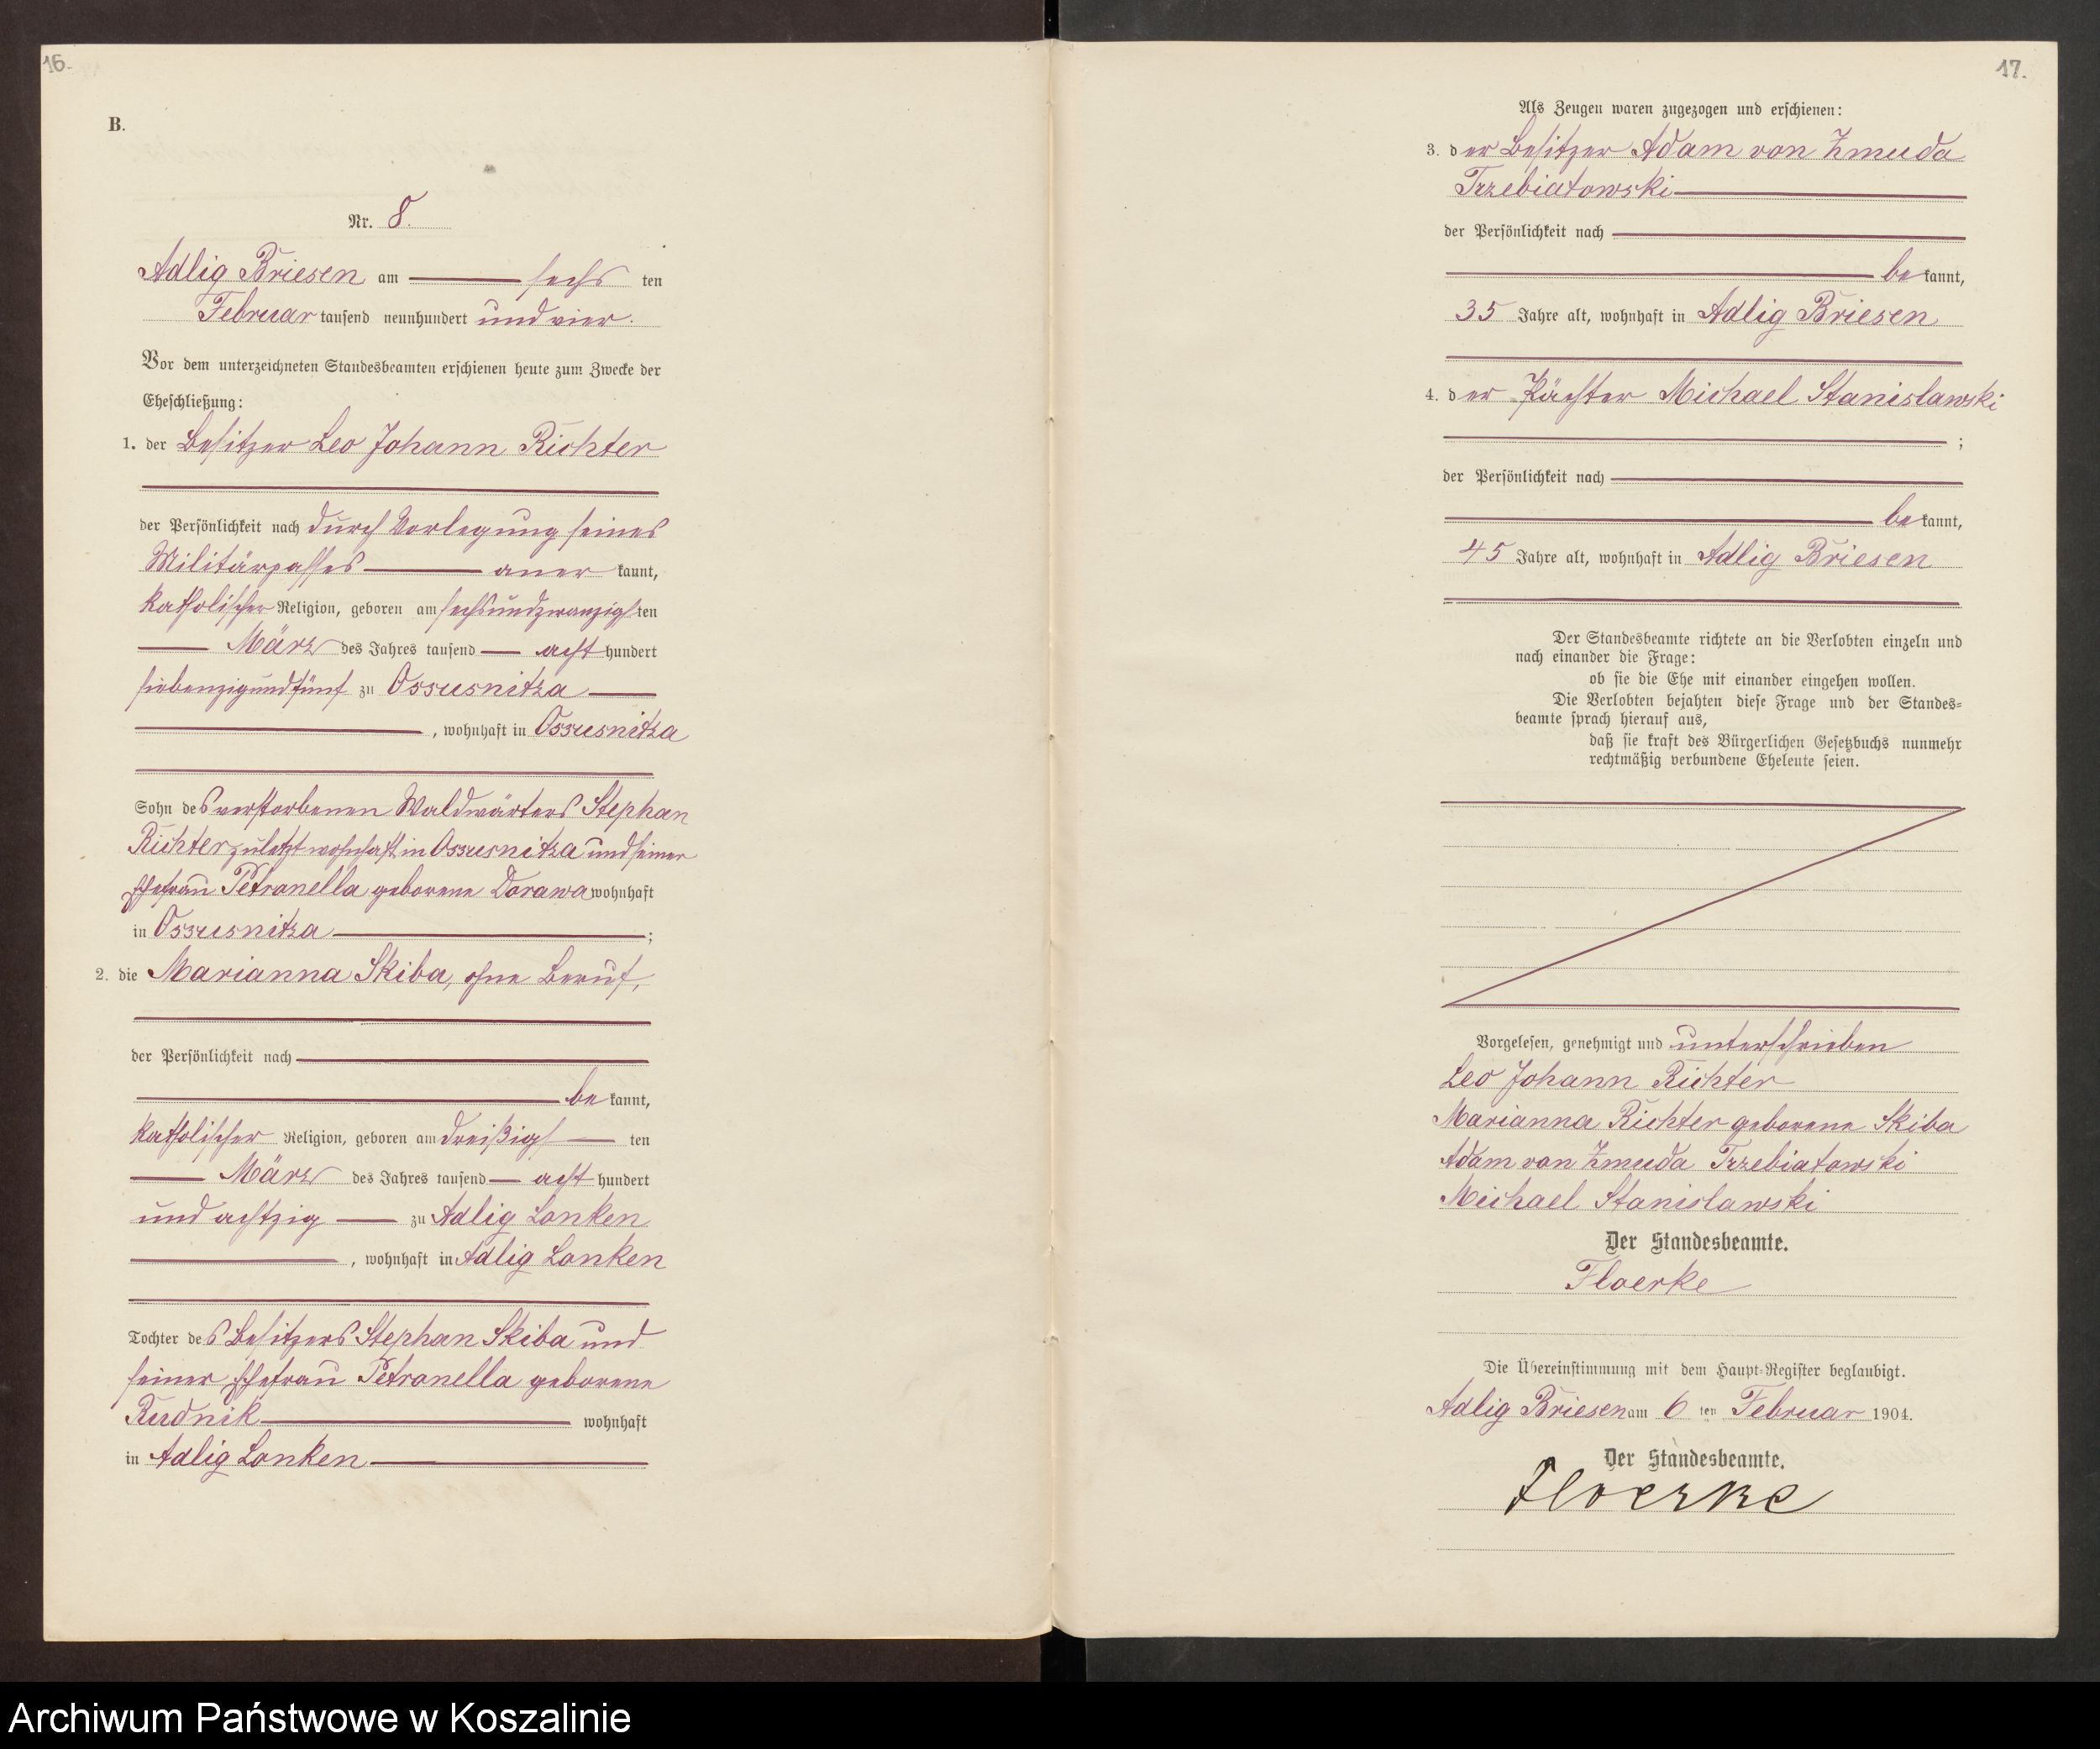 16.
B.
Nr. 8.
Adlig Briesen am sechs ten
Februar tausend neunhundert und vier.
Vor dem unterzeichneten Standesbeamten erschienen heute zum Zwecke der
Eheschließung:
1. der Besitzer Leo Johann Richter
der Persönlichkeit nach durch Vorlegung seines
Militärpasses aner kannt,
katholischer Religion, geboren am sechsundzwanzigsten
März des Jahres tausend acht hundert
siebenzigundfünf zu Ossusnitza
, wohnhaft in Ossusnitza
Sohn des verstorbenen Waldwärters Stephan
Richter zuletzt wohnhaft in Ossusnitza und seiner
Ehefrau Petronella geborene Dorawa wohnhaft
in Ossusnitza ;
2. die Marianna Skiba, ohne Beruf,
der Persönlichkeit nach
be kannt,
katholischer Religion, geboren am dreißigs ten
März des Jahres tausend acht hundert
und achtzig zu Adlig Lonken
, wohnhaft in Adlig Lonken
Tochter des Besitzers Stephan Skiba und
seiner Ehefrau Petronella geborene
Rudnik wohnhaft
in Adlig Lonken
17.
Als Zeugen waren zugezogen und erschienen:
3. der Besitzer Adam von Zmuda
Trzebiatowski
der Persönlichkeit nach
be kannt,
35 Jahre alt, wohnhaft in Adlig Briesen
4. der Pächter Michael Stanislawski
;
der Persönlichkeit nach
be kannt,
45 Jahre alt, wohnhaft in Adlig Briesen
Der Standesbeamte richtete an die Verlobten einzeln und
nach einander die Frage:
ob sie die Ehe mit einander eingehen wollen.
Die Verlobten bejahten diese Frage und der Standes=
beamte sprach hierauf aus,
daß sie kraft des Bürgerlichen Gesetzbuchs nunmehr
rechtmäßig verbundene Eheleute seien.
Vorgelesen, genehmigt und unterschrieben
Leo Johann Richter
Marianna Richter geborene Skiba
Adam von Zmuda Trzebiatowski
Michael Stanislawski
Der Standesbeamte.
Floerke
Die Übereinstimmung mit dem Haupt=Register beglaubigt.
Adlig Briesen am 6 ten Februar 1904.
Der Standesbeamte.
Floerke
Archiwum Państwowe w Koszalinie